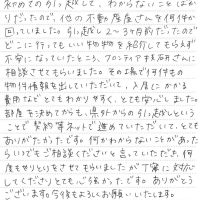 初めての引っ越しで、わからないことばか
りだったので、他の不動産屋さんを何件か
回っていました。引っ越し2〜3ヶ月前だったので
どこに行ってもいい物件を紹介してもらえず
不安になっていたところ、フロンティア技研さんに
相談させてもらいました。その場で何件もの
物件情報を出していただいて、入居にかかる
費用などもとてもわかりやすく、とても安心しました。
部屋を決めてからも、県外からの引っ越しという
ことで契約等ネットで進めていただいて、とても
ありがたかったです。何かわからないことがあった
らいつでもご相談くださいと言っていただき、何
度もやりとりをさせてもらいましたが丁寧に対応
してくださりとても心強かったです。ありがとうご
ざいます。今後もよろしくお願いいたします。